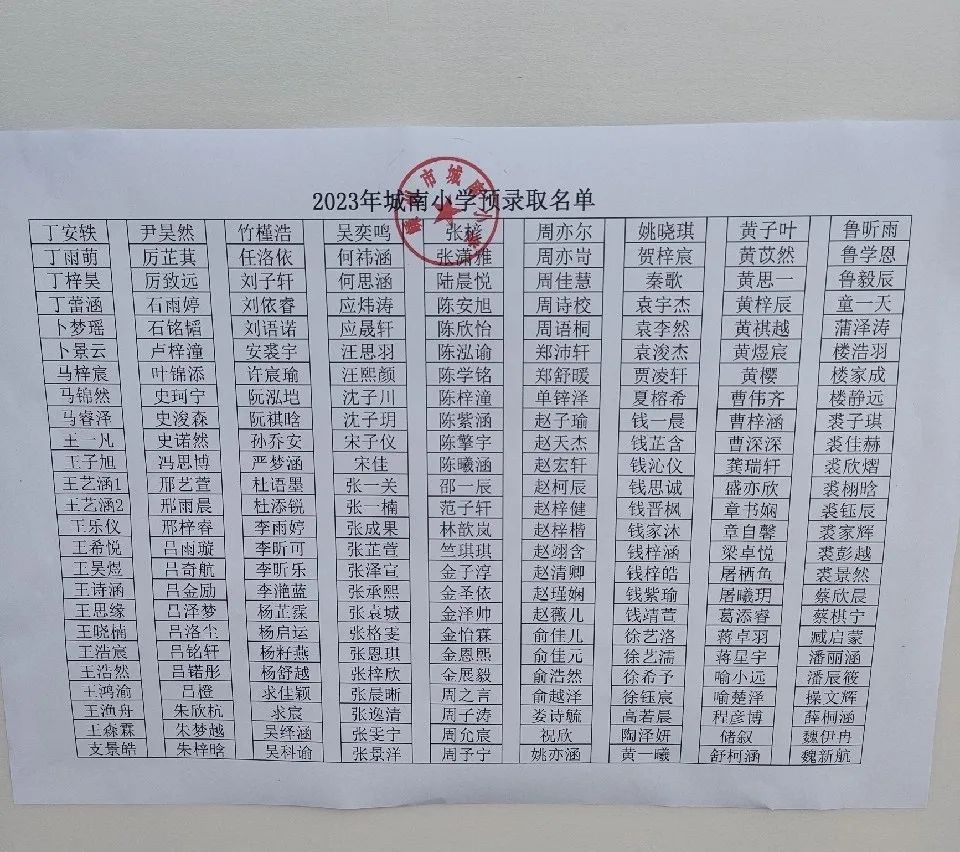 2023年城南小学预录取名单
丁安轶 尹昊然 竹槿浩 吴奕鸣 张 周亦尔 姚晓琪 黄子叶 鲁昕雨
丁雨萌 厉芷萁 任洛依 何祎涵 张潇雅 周亦岢 贺梓宸 黄苡然 鲁学恩
丁梓昊 厉致远 刘子轩 何思涵 陆晨悦 周佳慧 秦歌 黄思一 鲁毅辰
丁蕾涵 石雨婷 刘依睿 应炜涛 陈安旭 周诗校 袁宇杰 黄梓辰 童一天
卜梦瑶 石铭韬 刘语诺 应晟轩 陈欣怡 周语桐 袁李然 黄祺越 蒲泽涛
卜景云 卢梓潼 安裘宇 汪思羽 陈泓谕 郑沛轩 袁浚杰 黄煜宸 楼浩羽
马梓宸 叶锦添 许宸瑜 汪熙颜 陈学铭 郑舒暖 贾凌轩 黄樱 楼家成
马锦然 史珂宁 阮泓垲 沈子川 陈梓潼 单锌泽 夏榕希 曹伟齐 楼静远
马睿泽 史浚森 阮祺晗 沈子玥 陈紫涵 赵子瑜 钱一晨 曹梓涵 裘子琪
王一凡 史诺然 孙乔安 宋子仪 陈擎宇 赵天杰 钱芷含 曹深深 裘佳赫
王子旭 冯思博 严梦涵 宋佳 陈曦涵 赵宏轩 钱沁仪 龚瑞轩 裘欣熠
王艺涵1 邢艺萱 杜语墨 张一关 邵一辰 赵柯辰 钱思诚 盛亦欣 裘栩晗
王艺涵2 邢雨晨 杜添锐 张一楠 范子轩 赵梓健 钱晋枫 章书娴 裘钰辰
王乐仪 邢梓睿 李雨婷 张成果 林歆岚 赵梓楷 钱家沐 章自馨 裘家辉
王希悦 吕雨璇 李昕可 张芷萱 竺琪琪 赵翊含 钱梓涵 梁卓悦 裘彭越
王昊煜 吕奇航 李昕乐 张泽宣 金子淳 赵清卿 钱梓皓 屠栖鱼 裘景然
王诗涵 吕金励 李滟蓝 张承熙 金圣依 赵瑾娴 钱紫瑜 屠曦玥 蔡欣晨
王思缘 吕泽梦 杨芷霂 张袁城 金泽帅 赵薇儿 钱靖萱 葛添睿 蔡棋宁
王晓楠 吕洛尘 杨启运 张格雯 金怡霖 俞佳儿 徐艺洛 蒋卓羽 臧启蒙
王浩宸 吕铭轩 杨籽燕 张恩琪 金恩熙 俞佳元 徐艺濡 蒋星宇 潘丽涵
王浩然 吕锘彤 杨舒越 张梓欣 金展毅 俞浩然 徐希予 喻小远 潘辰筱
王鸿渝 吕橙 求佳颖 张晨晰 周之言 俞越洋 徐钰宸 喻楚泽 操文辉
王渔舟 朱欣杭 求宸 张逸清 周子涛 娄诗毓 高若晨 程彦博 薛桐涵
王森霖 朱梦越 吴绎涵 张雯宁 周允宸 祝欣 陶泽妍 储叙 魏伊冉
支景皓 朱梓晗 吴科谕 张景洋 周予宁 姚亦涵 黄一曦 舒柯涵 魏新航